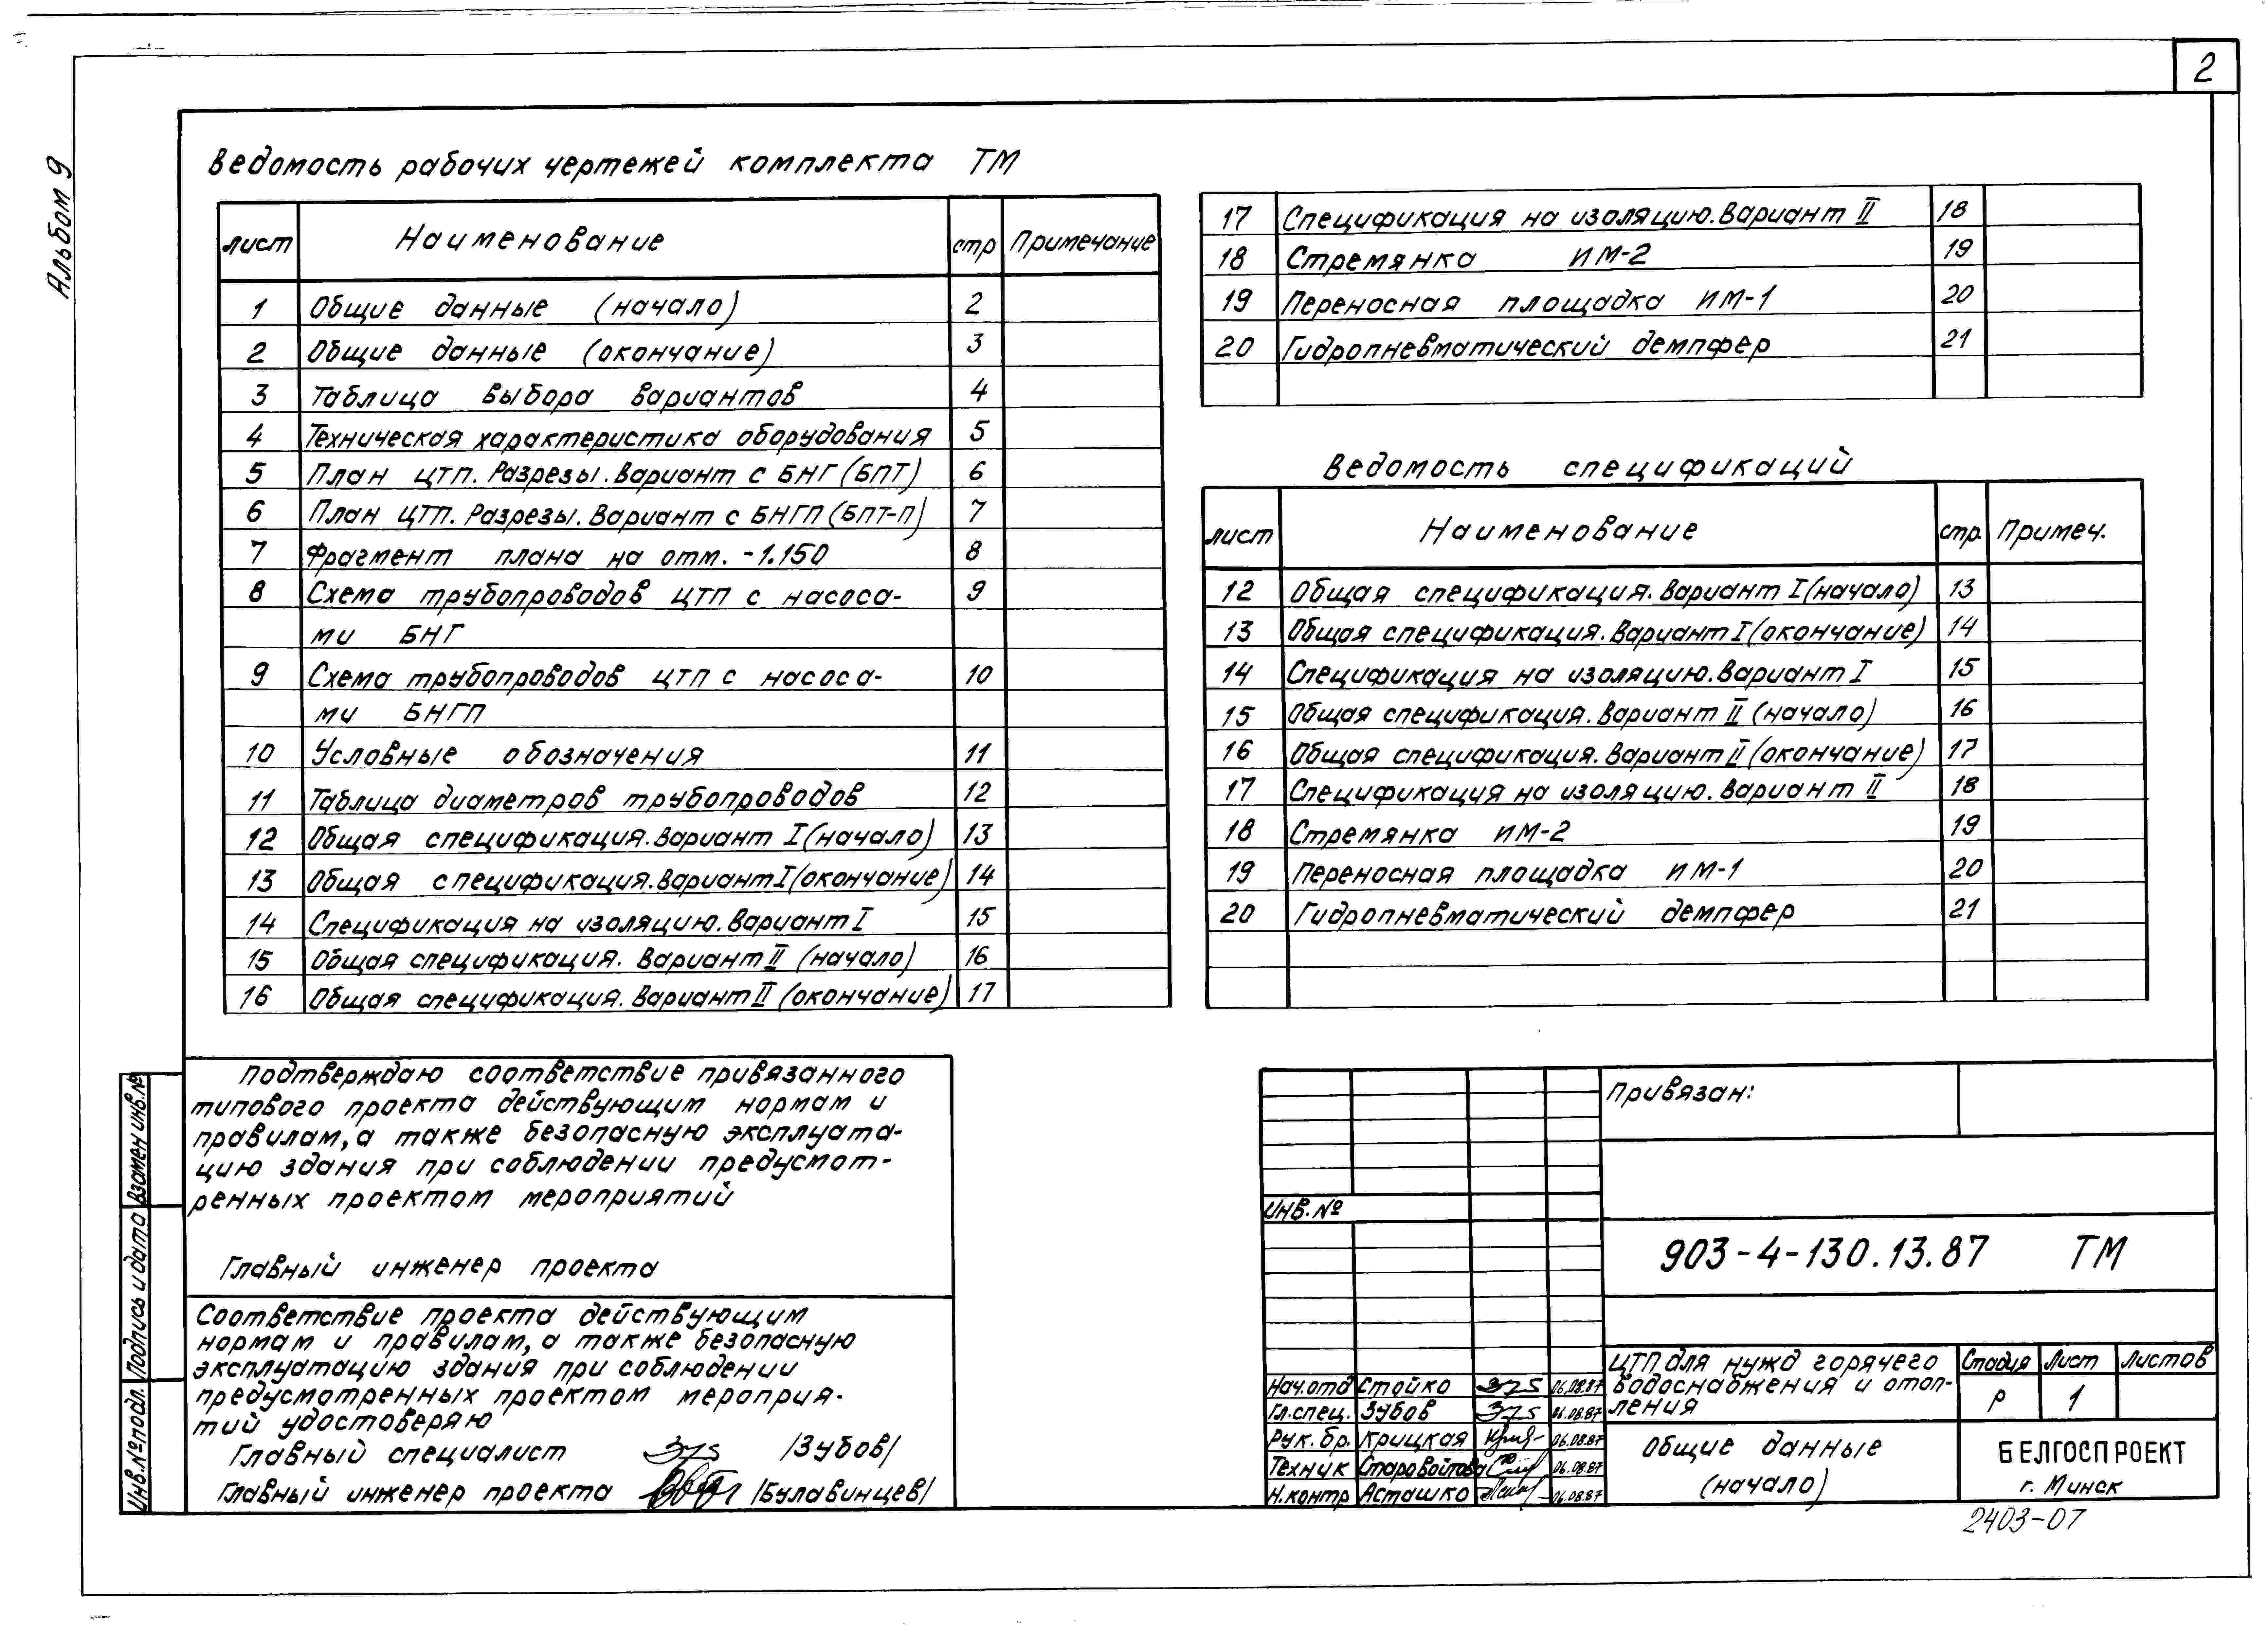 2
Альбом 9
Ведомость рабочих чертежей комплекта ТМ
лист Наименование стр Примечание
1 Общие данные (начало) 2
2 Общие данные (окончание) 3
3 Таблица выбора вариантов 4
4 Техническая характеристика оборудования 5
5 План ЦТП. Разрезы. Вариант с БНГ (БПТ) 6
6 План ЦТП. Разрезы. Вариант с БНГП (БПТ-П) 7
7 Фрагмент плана на отм. -1.150 8
8 Схема трубопроводов ЦТП с насоса- 9
ми БНГ
9 Схема трубопроводов ЦТП с насоса- 10
ми БНГП
10 Условные обозначения 11
11 Таблица диаметров трубопроводов 12
12 Общая спецификация. Вариант I (начало) 13
13 Общая спецификация. Вариант I (окончание) 14
14 Спецификация на изоляцию. Вариант I 15
15 Общая спецификация. Вариант II (начало) 16
16 Общая спецификация. Вариант II (окончание) 17
17 Спецификация на изоляцию. Вариант II 18
18 Стремянка ИМ-2 19
19 Переносная площадка ИМ-1 20
20 Гидропневматический демпфер 21
Ведомость спецификаций
лист Наименование стр. Примеч.
12 Общая спецификация. Вариант I (начало) 13
13 Общая спецификация. Вариант I (окончание) 14
14 Спецификация на изоляцию. Вариант I 15
15 Общая спецификация. Вариант II (начало) 16
16 Общая спецификация. Вариант II (окончание) 17
17 Спецификация на изоляцию. Вариант II 18
18 Стремянка ИМ-2 19
19 Переносная площадка ИМ-1 20
20 Гидропневматический демпфер 21
Подтверждаю соответствие привязанного
типового проекта действующим нормам и
правилам, а также безопасную эксплуата-
цию здания при соблюдении предусмот-
ренных проектом мероприятий
Главный инженер проекта
Соответствие проекта действующим
нормам и правилам, а также безопасную
эксплуатацию здания при соблюдении
предусмотренных проектом мероприя-
тий удостоверяю
Главный специалист /Зубов/
Главный инженер проекта /Булавинцев/
Взамен инв.№
Подпись и дата
Инв.№ подл.
Привязан:
Инв.№
903-4-130.13.87 ТМ
ЦТП для нужд горячего
водоснабжения и отоп-
ления
Стадия Лист Листов
Р 1
Нач.отд Стойко 06.08.87
Гл.спец. Зубов 06.08.87
Рук.бр. Крицкая 06.08.87
Техник Старовойтова 06.08.87
Н.контр Асташко 06.08.87
Общие данные
(начало)
БЕЛГОСПРОЕКТ
г. Минск
2403-07